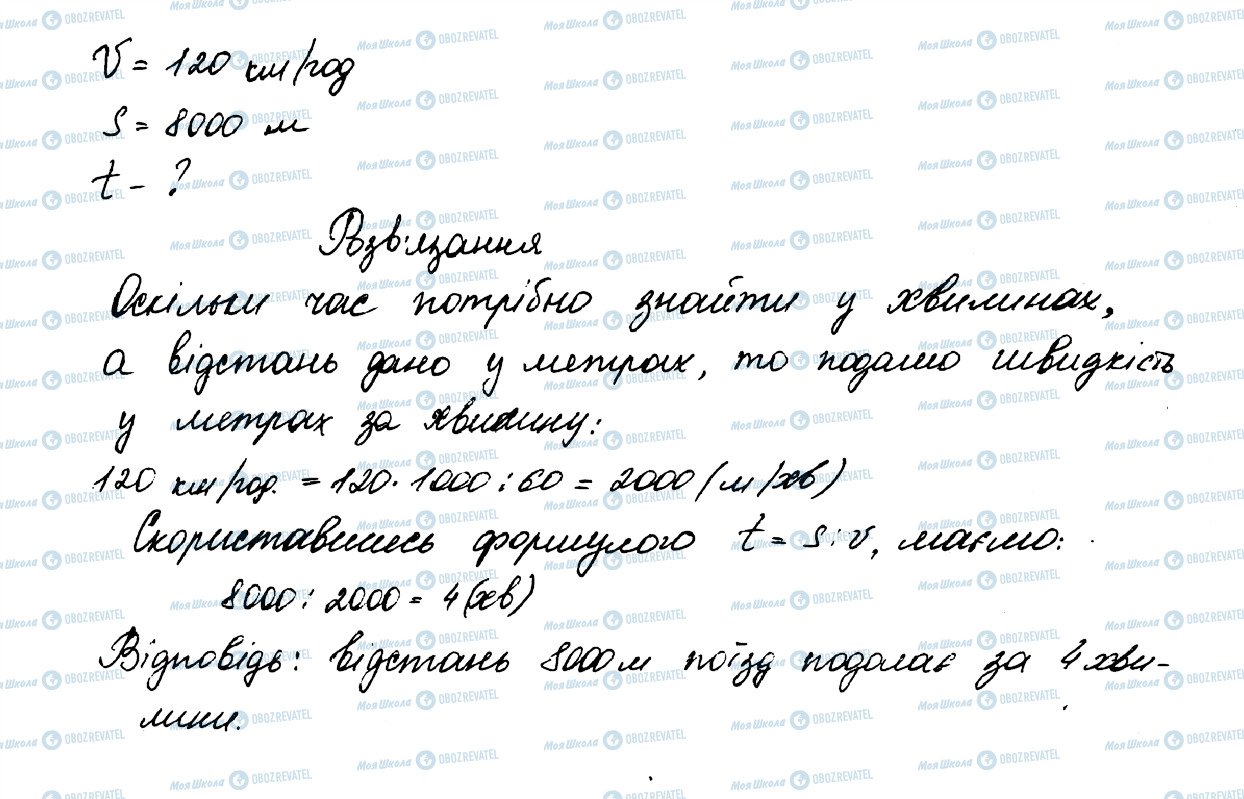 V = 120 км/год
S = 8000 м
t - ?
Розв'язання
Оскільки час потрібно знайти у хвилинах,
а відстань дано у метрах, то подамо швидкість
у метрах за хвилину:
120 км/год. = 120 · 1000 : 60 = 2000 (м/хв)
Скориставшись формулою t = S : v, маємо:
8000 : 2000 = 4 (хв)
Відповідь: відстань 8000 м поїзд подолає за 4 хви-
лини.